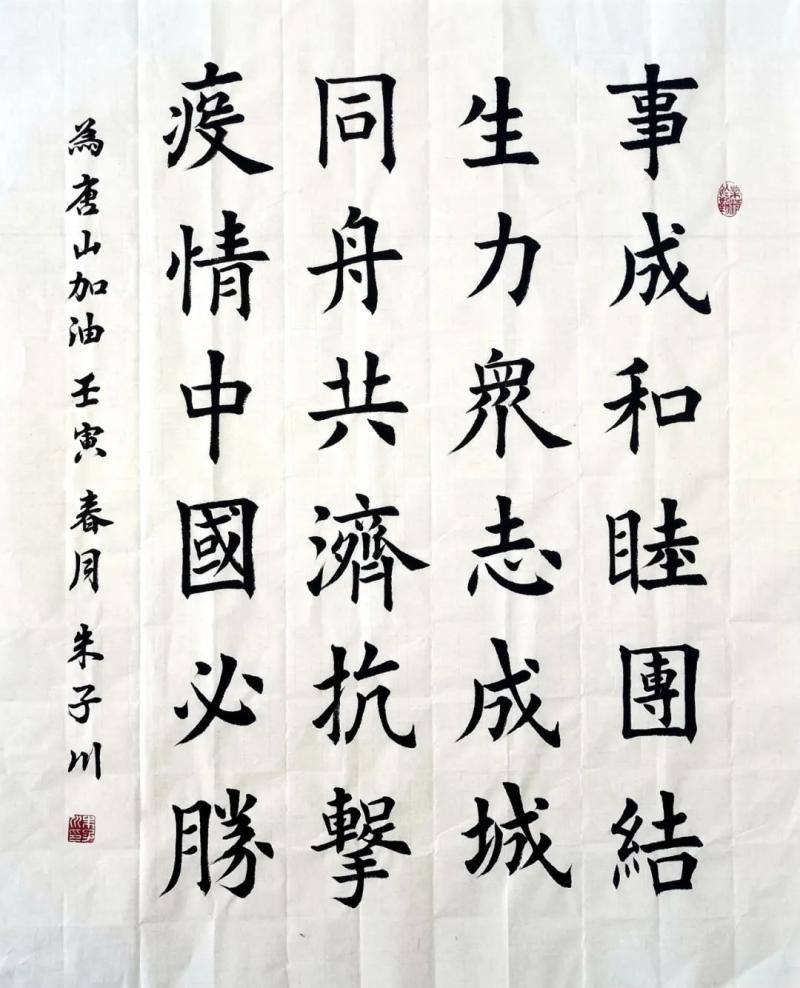 事成和睦團結
生力眾志成城
同舟共濟抗擊
疫情中國必勝
為唐山加油 壬寅 春月 朱子川